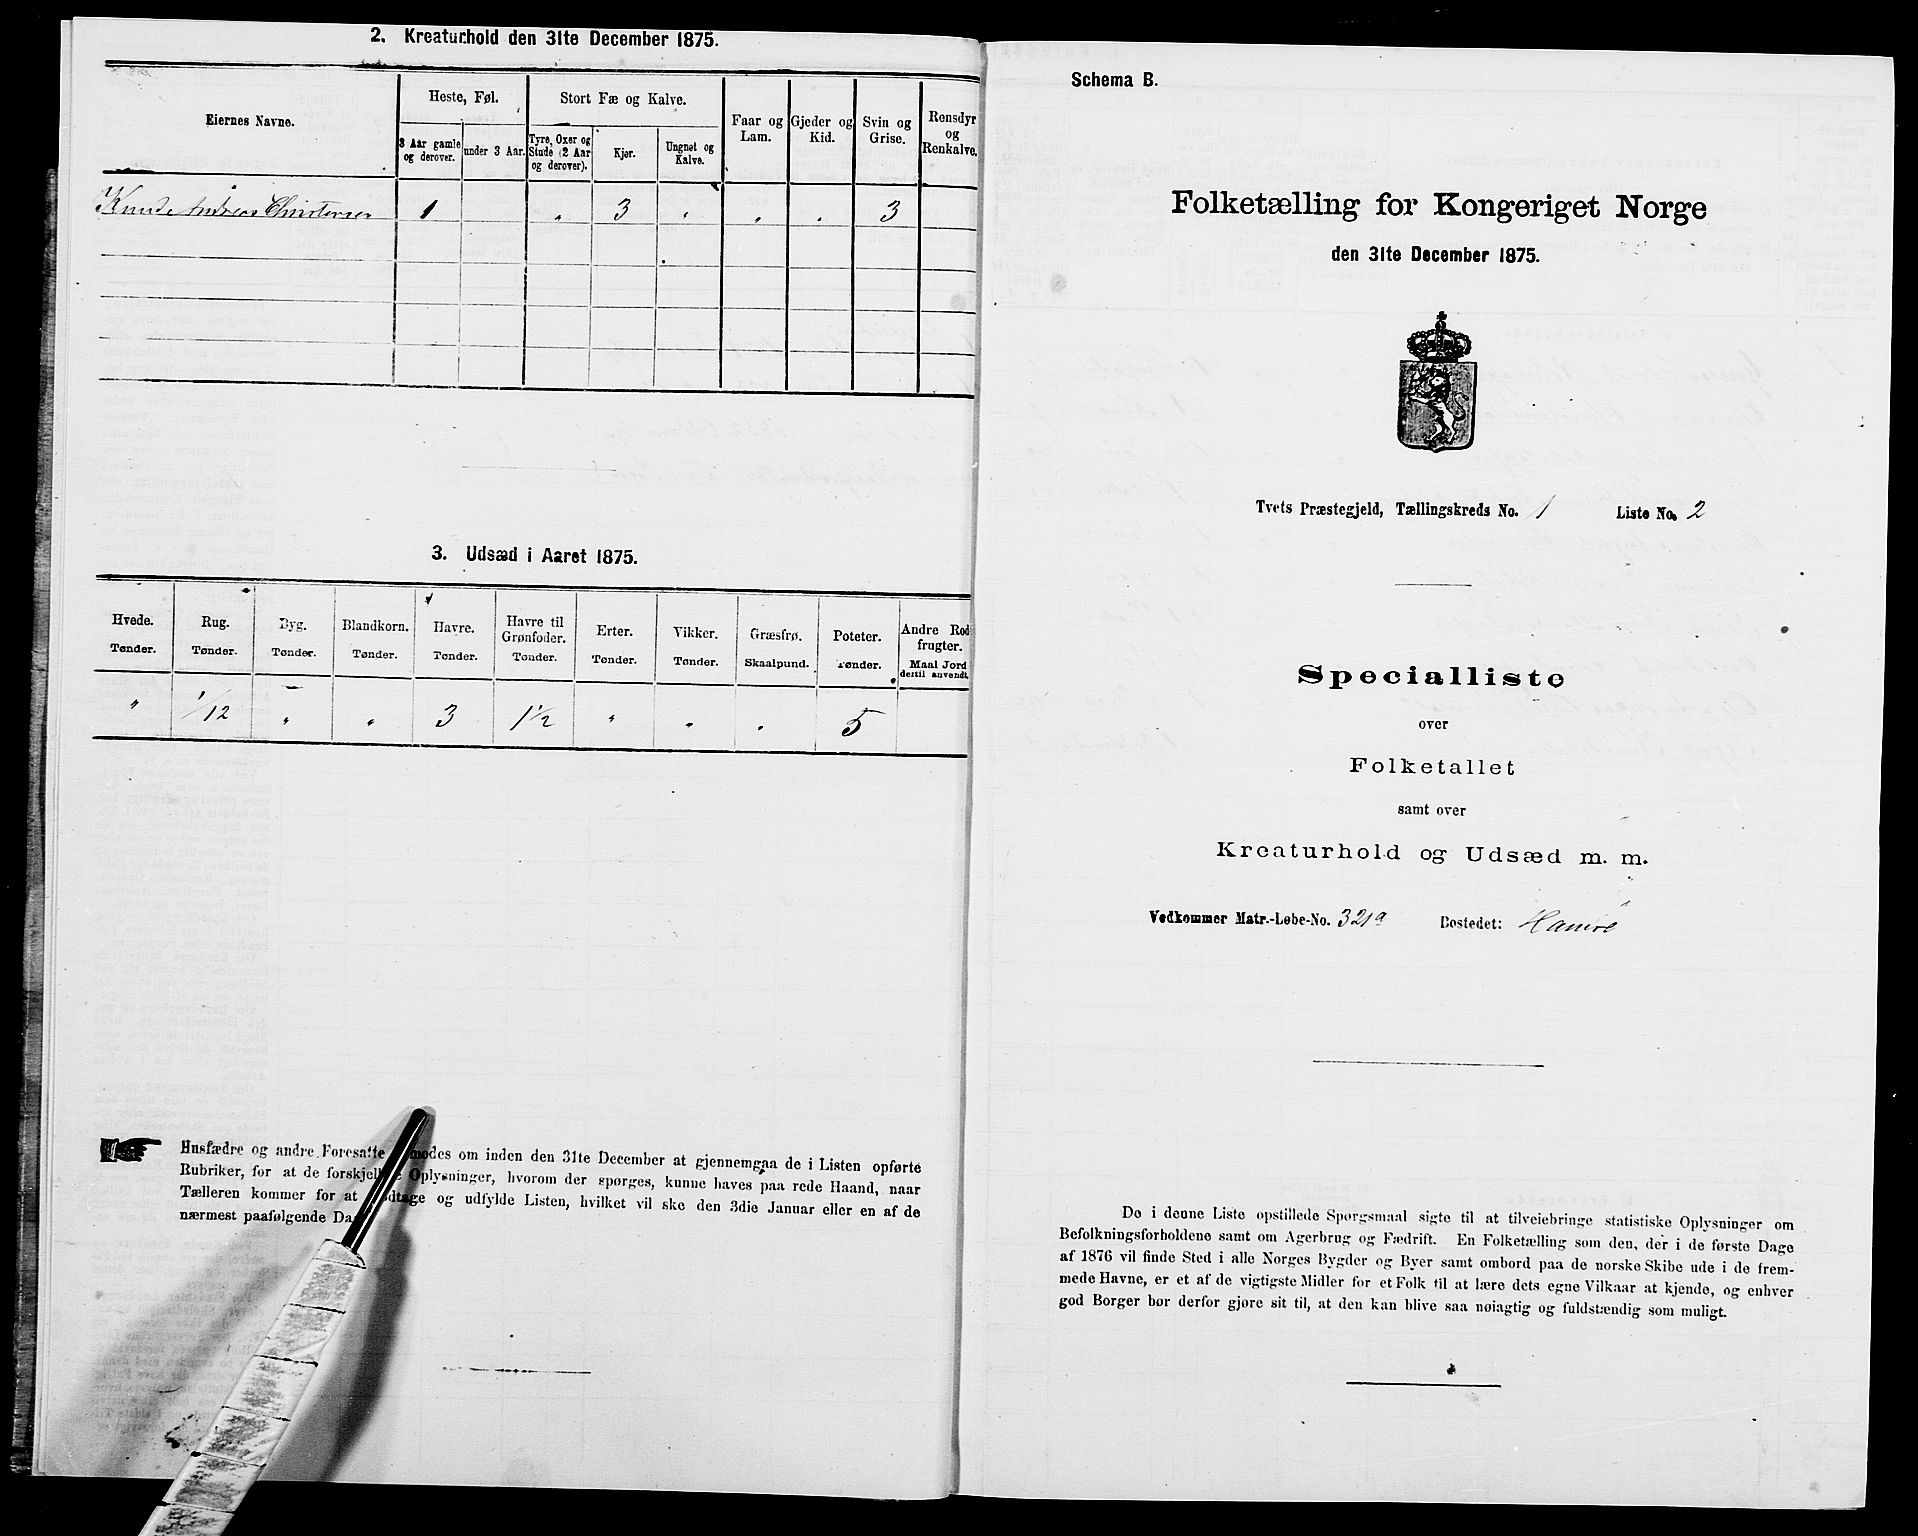 2. Kreaturhold den 31te December 1875.
Eiernes Navne.
Heste, Føl.
Stort Fæ og Kalve.
3 Aar gamle og derover.
under 3 Aar.
Tyre, Oxer og Stude (2 Aar og derover).
Kjør.
Ungnøt og Kalve.
Faar og Lam.
Gjeder og Kid.
Svin og Grise.
Rensdyr og Renkalve.
Knud Andreas Christensen 1 " 3 " " " 3
3. Udsæd i Aaret 1875.
Hvede. Tønder.
Rug. Tønder.
Byg. Tønder.
Blandkorn. Tønder.
Havre. Tønder.
Havre til Grønfoder. Tønder.
Erter. Tønder.
Vikker. Tønder.
Græsfrø. Skaalpund.
Poteter. Tønder.
Andre Rodfrugter. Maal Jord dertil anvendt.
" 1/12 " " 3 1½ " " " 5
Husfædre og andre Foresatte
om inden den 31te December at gjennemgaa de i Listen opførte
Rubriker, for at de
Oplysninger, hvorom der spørges, kunne haves paa rede Haand, naar
Tælleren kommer for at
og udfylde Listen, hvilket vil ske den 3die Januar eller en af de
nærmest paafølgende
Schema B.
Folketælling for Kongeriget Norge
den 31te December 1875.
Tvets Præstegjeld, Tællingskreds No. 1 Liste No. 2
Specialliste
over
Folketallet
samt over
Kreaturhold og Udsæd m. m.
Vedkommer Matr.-Løbe-No. 321a Bostedet: Hamre
De i denne Liste opstillede Spørgsmaal sigte til at tilveiebringe statistiske Oplysninger om
Befolkningsforholdene samt om Agerbrug og Fædrift. En Folketælling som den, der i de første Dage
af 1876 vil finde Sted i alle Norges Bygder og Byer samt ombord paa de norske Skibe ude i de frem-
mede Havne, er et af de vigtigste Midler for et Folk til at lære dets egne Vilkaar at kjende, og enhver
god Borger bør derfor gjøre sit til, at den kan blive saa nøiagtig og fuldstændig som muligt.